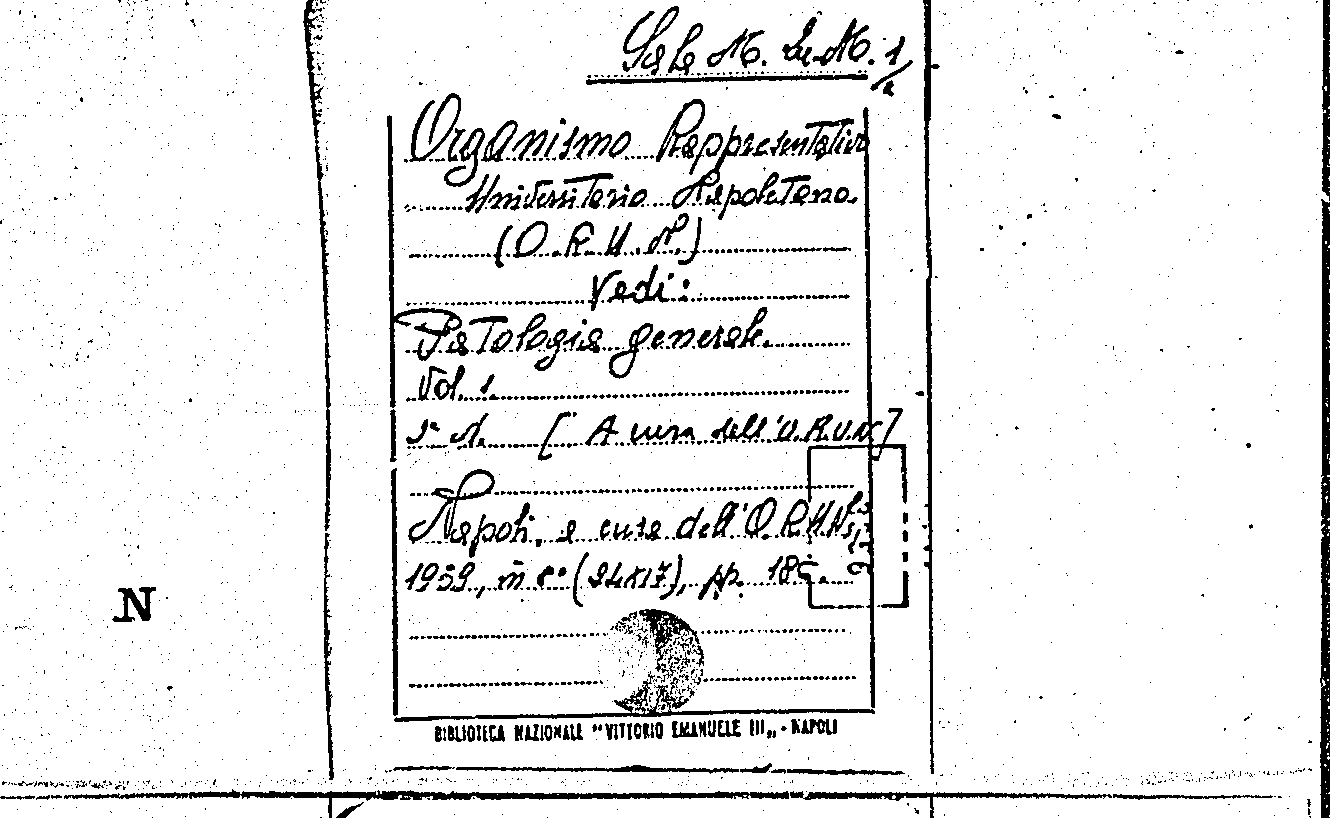 Sala M. Le M. 1/
Organismo Rappresentativo
Universitario Napoletano.
(O.R.U.N.)
Vedi:
Patologia generale.
Vol. 1.
[A cura dell'O.R.U.N.]
Napoli, a cura dell'O.R.U.N.,
1959, in 8° (24x17), pp. 18
N
BIBLIOTECA NAZIONALE "VITTORIO EMANUELE III„ - NAPOLI